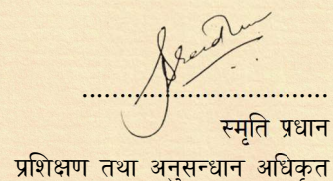 स्मृति प्रधान
प्रशिक्षण तथा अनुसन्धान अधिकृत